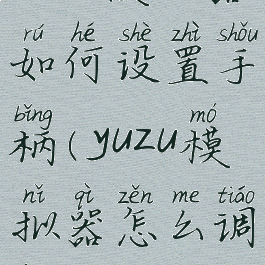 rú hé shè zhì shǒu
如何设置手
bǐng mó
柄(yuzu模
nǐ qì zěn me tiáo
拟器怎么调